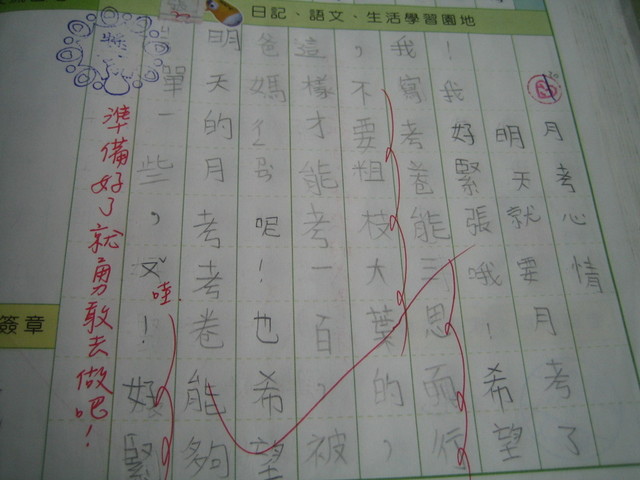 日記、語文、生活學習園地
月考心情
明天就要月考了
！我好緊張哦！希望
我寫考卷能三思而行
，不要粗枝大葉的，
這樣才能考一百，被
爸媽呢！也希望
明天的月考考卷能夠
單一些，哇！好緊
準備好了就勇敢去做吧！
簽章